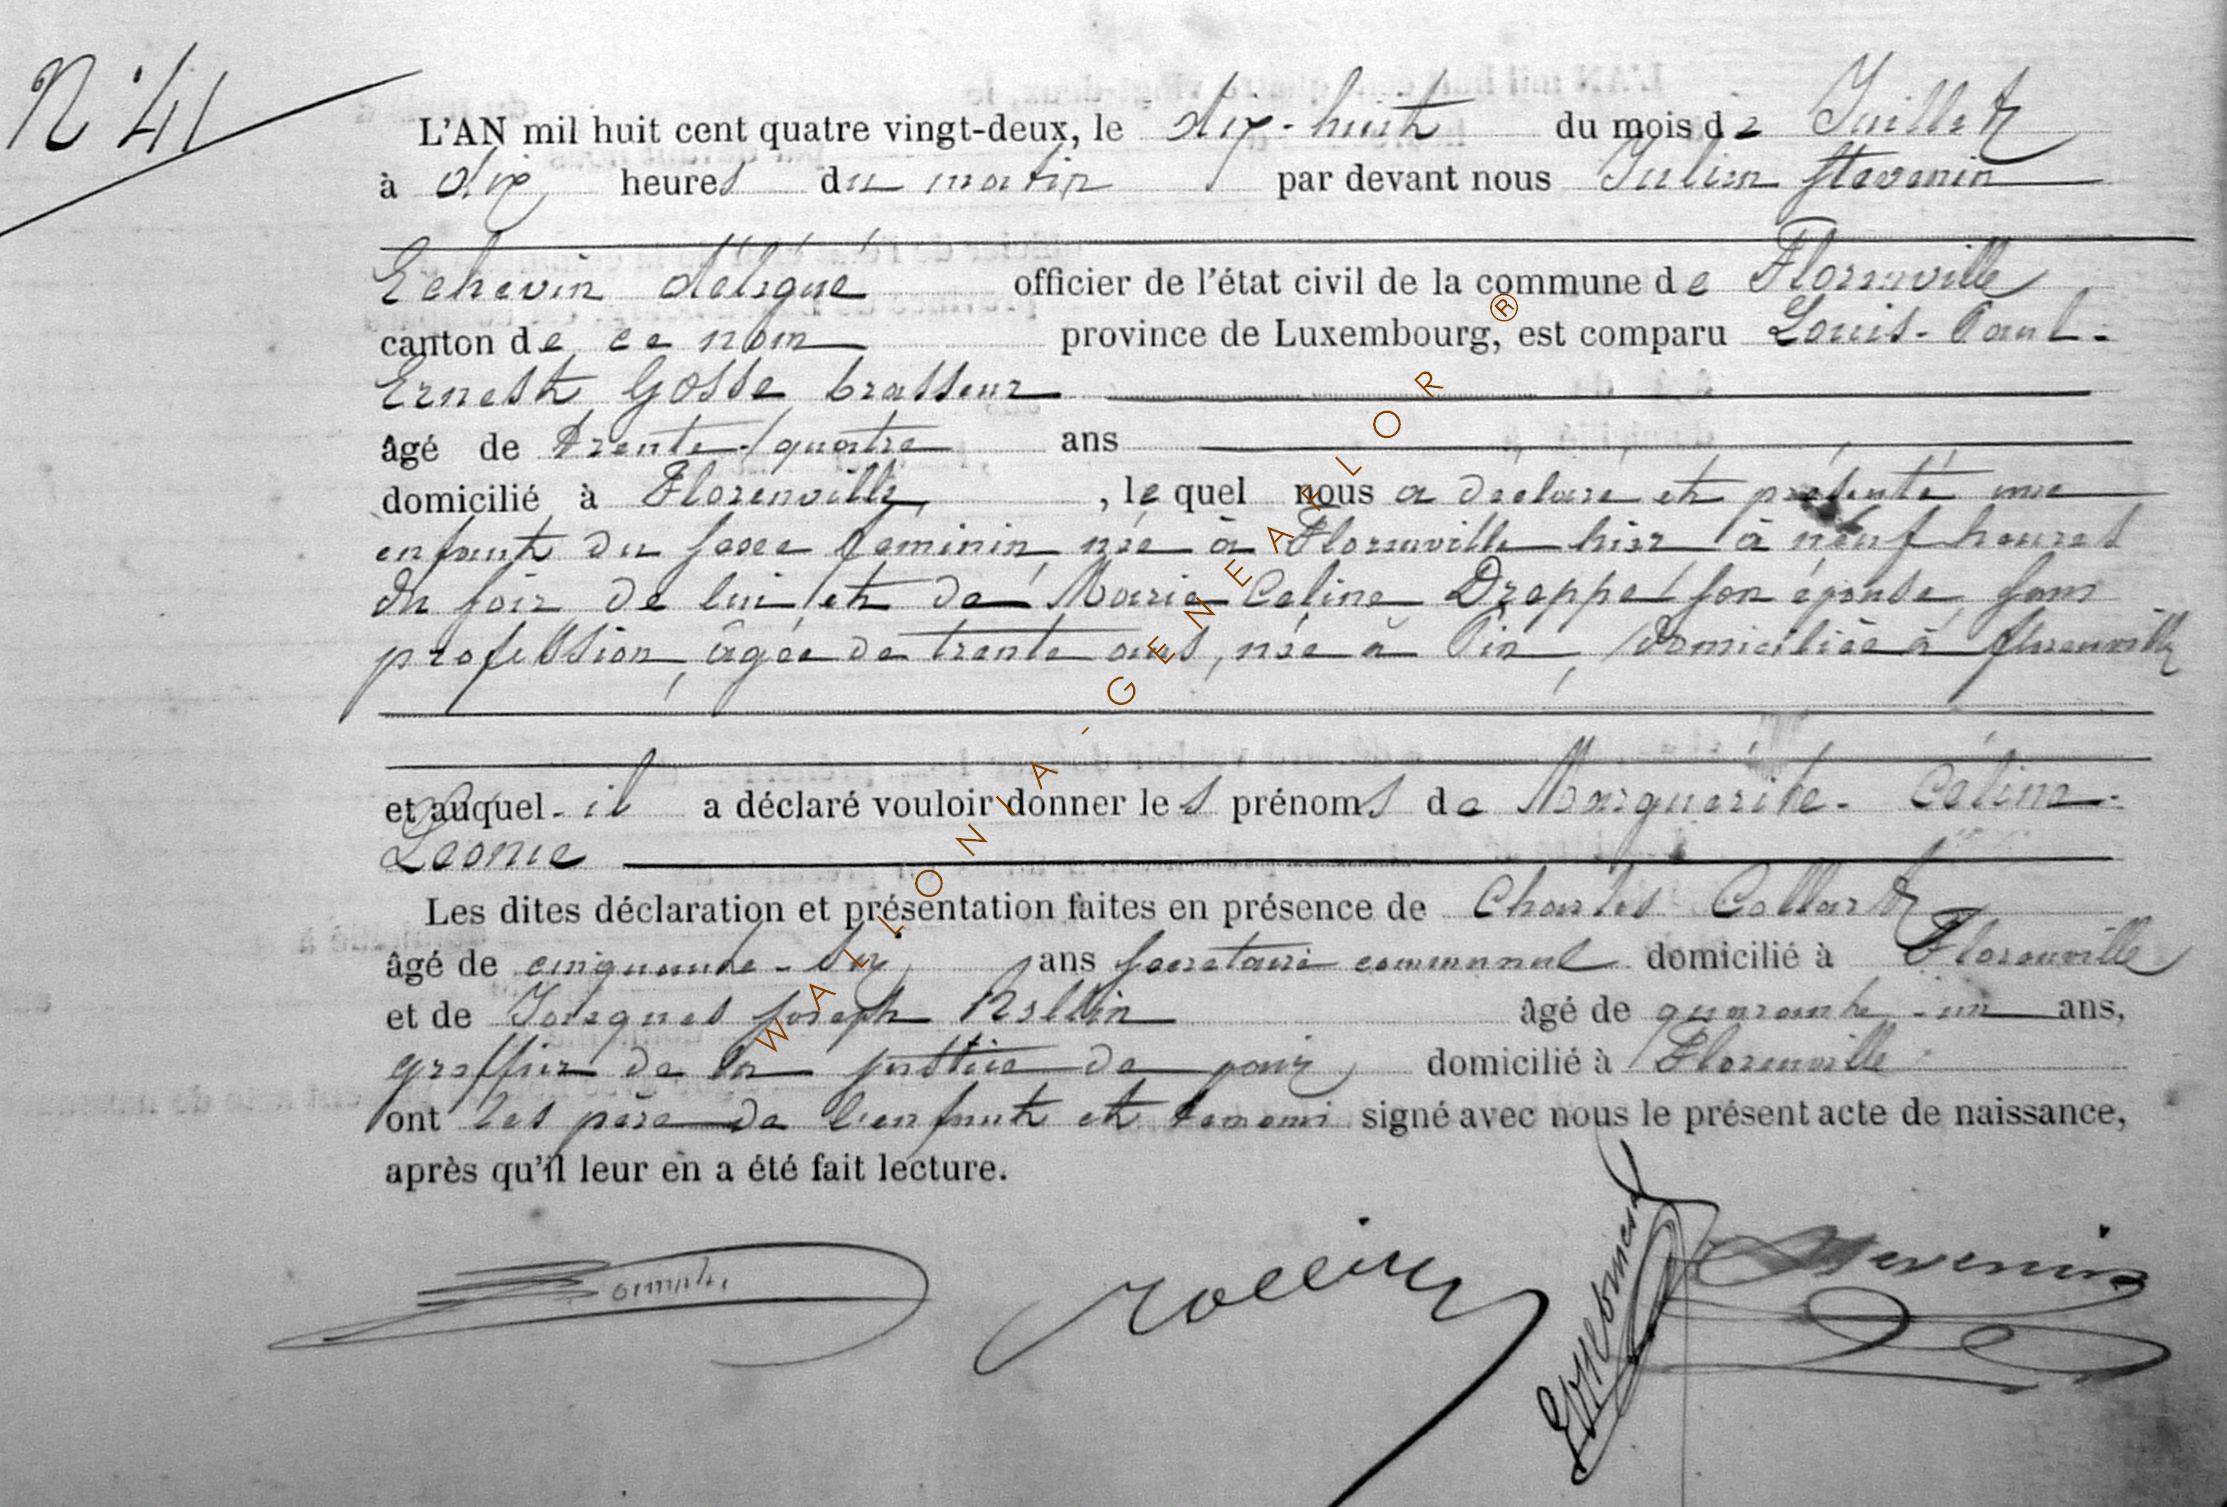 N° 41
L'AN mil huit cent quatre vingt-deux, le dix-huit du mois de Juillet
à dix heures du matin par devant nous Julien Stevenin
Echevin délégué officier de l'état civil de la commune de Florenville
canton de ce nom province de Luxembourg, est comparu Louis-Paul-
Ernest Gosse brasseur
âgé de trente-quatre ans
domicilié à Florenville, lequel nous a déclaré et présenté une
enfant du sexe féminin née à Florenville hier à neuf heures
du soir de lui et de Marie Celine Dreppe son épouse, sans
profession, âgée de trente ans, née à Pin, domiciliée à florenville
et auquel-il a déclaré vouloir donner les prénoms de Marguerite-Céline-
Léonie
Les dites déclaration et présentation faites en présence de Charles Collart
âgé de cinquante-six ans secretaire communal domicilié à Florenville
et de Jacques Joseph Rollin âgé de quarante-un ans,
greffier de la justice de paix domicilié à Florenville
ont les père de l'enfant et temoins signé avec nous le présent acte de naissance,
après qu'il leur en a été fait lecture.
rollin
Stevenin
WALLONIA-GENEAFLOR®